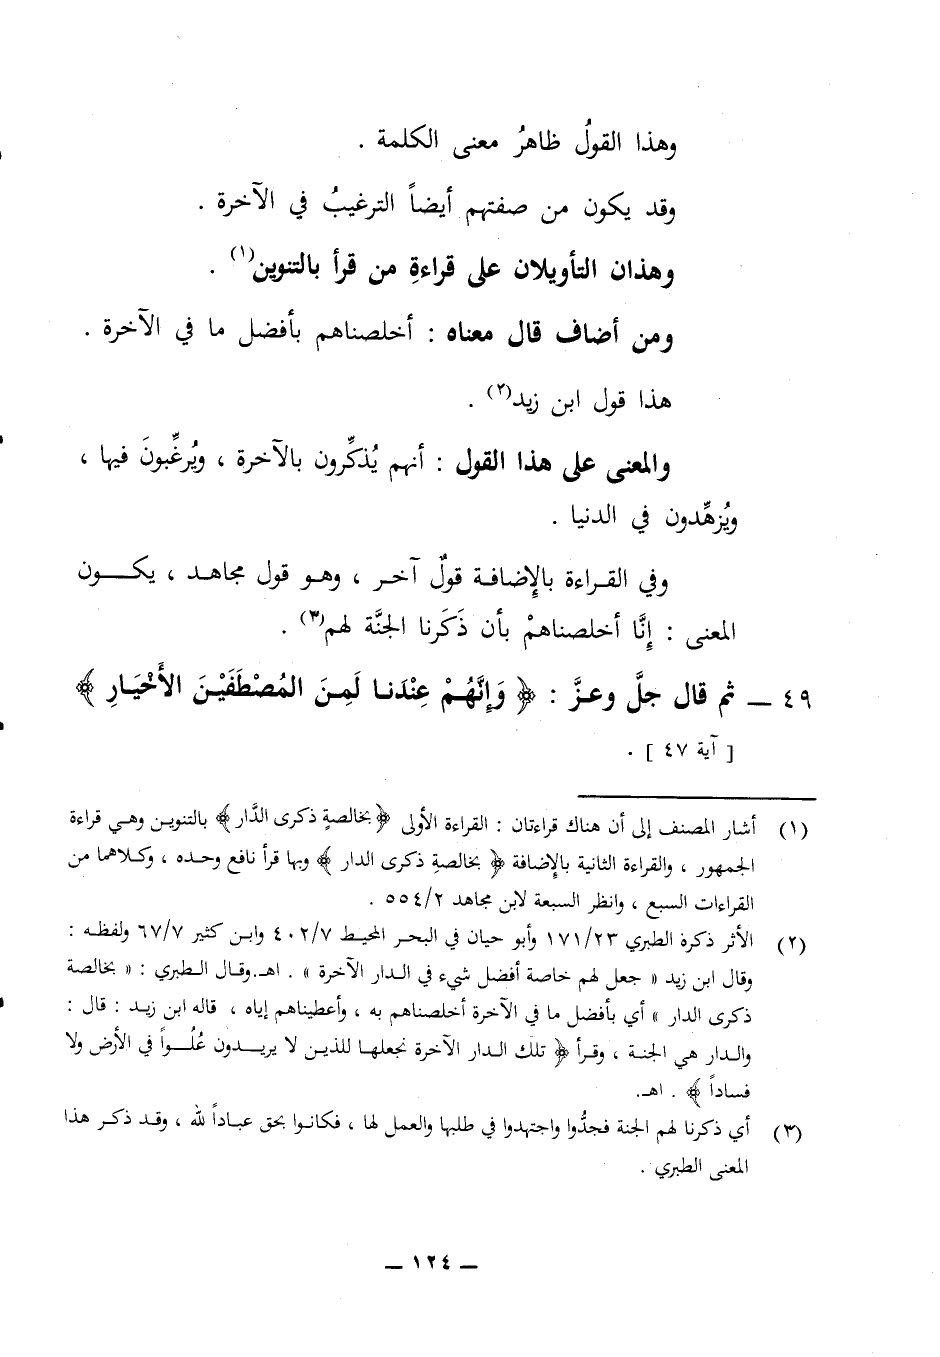 وهذا القولُ ظاهرُ معنى الكلمة .
وقد يكون من صفتهم أيضاً الترغيبُ في الآخرة .
وهذان التأويلان على قراءةِ من قرأ بالتنوين(١) .
ومن أضاف قال معناه : أخلصناهم بأفضل ما في الآخرة .
هذا قول ابن زيد(٢) .
والمعنى على هذا القول : أنهم يُذكِّرون بالآخرة ، ويُرغِّبونَ فيها ،
ويُزهِّدون في الدنيا .
وفي القراءة بالإضافة قولٌ آخر ، وهو قول مجاهد ، يكون
المعنى : إنَّا أخلصناهمْ بأن ذَكَرنا الجنَّة لهم(٣) .
٤٩ ـ ثم قال جلَّ وعزَّ : ﴿ وَإِنَّهُمْ عِنْدَنا لَمِنَ المُصْطَفَيْنَ الأَخْيَارِ ﴾
[ آية ٤٧ ] .
(١) أشار المصنف إلى أن هناك قراءتان : القراءة الأولى ﴿بخالصةٍ ذكرى الدَّار ﴾ بالتنوين وهي قراءة
الجمهور ، والقراءة الثانية بالإضافة ﴿ بخالصةِ ذكرى الدار ﴾ وبها قرأ نافع وحده ، وكلاهما من
القراءات السبع ، وانظر السبعة لابن مجاهد ٥٥٤/٢ .
(٢) الأثر ذكرة الطبري ١٧١/٢٣ وأبو حيان في البحر المحيط ٤٠٢/٧ وابن كثير ٦٧/٧ ولفظه :
وقال ابن زيد « جعل لهم خاصة أفضل شيء في الدار الآخرة » . اهـ.وقال الطبري : « بخالصة
ذكرى الدار » أي بأفضل ما في الآخرة أخلصناهم به ، وأعطيناهم إياه ، قاله ابن زيد : قال :
والدار هي الجنة ، وقرأ ﴿ تلك الدار الآخرة نجعلها للذين لا يريدون عُلُواً في الأرض ولا
فساداً ﴾ . اهـ.
(٣) أي ذكرنا لهم الجنة فجدُّوا واجتهدوا في طلبها والعمل لها ، فكانوا بحق عباداً لله ، وقد ذكر هذا
المعنى الطبري .
ـ ١٢٤ ـ